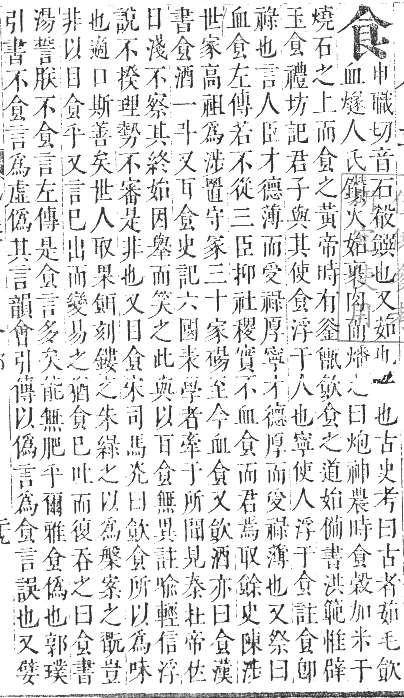 食申職切音石殽饌也又茹也也古史考曰古者茹毛飲
血燧人氏鑽火始裹肉而燔之曰炮神農時食穀加米于
燒石之上而食之黃帝時有釜甑飲食之道始備書洪範惟辟
玉食禮坊記君子與其使食浮于人也寧使人浮于食註食卽
祿也言人臣才德薄而受祿厚寧才德厚而受祿薄也又祭曰
血食左傳若不從三臣抑社稷實不血食而君焉取餘史陳涉
世家高祖為涉置守冢三十家碭至今血食又飲酒亦曰食漢
書食酒一斗又耳食史記六國表學者牽于所聞見秦在帝位
日淺不察其終始因舉而笑之此與以耳食無異註喻輕信浮
說不揆理勢不審是非也又目食宋司馬光曰飲食所以為味
也適口斯善矣世人取果餌刻鏤之朱綠之以為槃案之翫豈
非以目食乎又言已出而變易之猶食已吐而復吞之曰食書
湯誓朕不食言左傳是食言多矣能無肥乎爾雅食偽也郭璞
引書不食言為虛偽其言韻會引傳以偽言為食言誤也又嬖